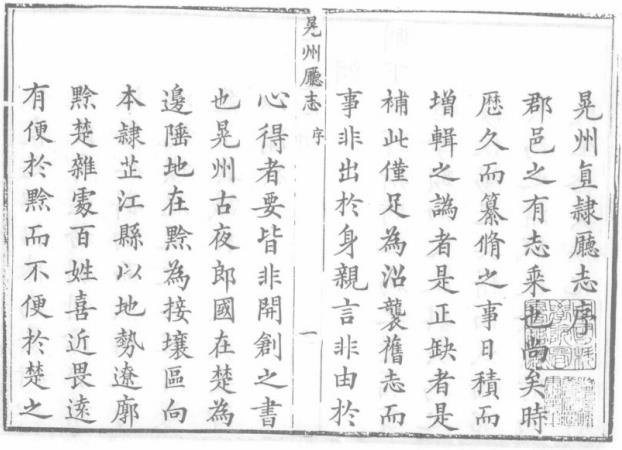 晃州直隸廳志序
郡邑之有志乘也尚矣時
歷久而纂脩之事日積而
增輯之譌者是正缺者是
補此僅足為沿襲舊志而
事非出於身親言非由於
晃州廳志 序 一
心得者要皆非開創之書
也晃州古夜郎國在楚為
邊陲地在黔為接壤區向
本隸芷江縣以地勢遼廓
黔楚雜處百姓喜近畏遠
有便於黔而不便於楚之